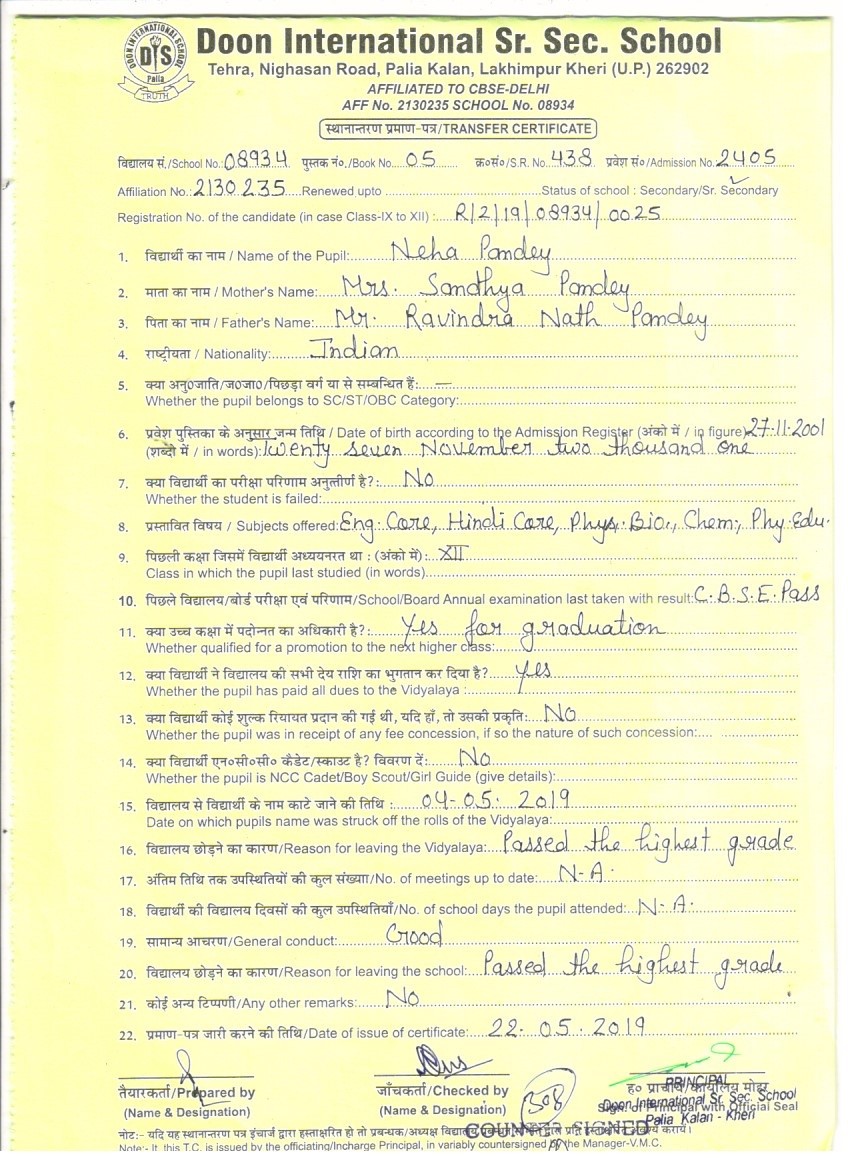 DOON INTERNATIONAL SCHOOL
DIS
Palia
TRUTH
Doon International Sr. Sec. School
Tehra, Nighasan Road, Palia Kalan, Lakhimpur Kheri (U.P.) 262902
AFFILIATED TO CBSE-DELHI
AFF No. 2130235 SCHOOL No. 08934
स्थानान्तरण प्रमाण-पत्र/TRANSFER CERTIFICATE
विद्यालय सं./School No.: 08934 पुस्तक नं०./Book No. 05 क्र०सं०/S.R. No. 438 प्रवेश सं०/Admission No.: 2405
Affiliation No.: 2130235 Renewed upto Status of school : Secondary/Sr. Secondary
Registration No. of the candidate (in case Class-IX to XII) : R/2/19/08934/0025
1. विद्यार्थी का नाम / Name of the Pupil: Neha Pandey
2. माता का नाम / Mother's Name: Mrs. Sandhya Pandey
3. पिता का नाम / Father's Name: Mr. Ravindra Nath Pandey
4. राष्ट्रीयता / Nationality: Indian
5. क्या अनु०जाति/ज०जा०/पिछड़ा वर्ग या से सम्बन्धित हैं: —
Whether the pupil belongs to SC/ST/OBC Category:
6. प्रवेश पुस्तिका के अनुसार जन्म तिथि / Date of birth according to the Admission Register (अंको में / in figure) 27.11.2001
(शब्दों में / in words): Twenty seven November two thousand one
7. क्या विद्यार्थी का परीक्षा परिणाम अनुत्तीर्ण है?: No
Whether the student is failed:
8. प्रस्तावित विषय / Subjects offered: Eng. Core, Hindi Core, Phys. Bio., Chem., Phy. Edu.
9. पिछली कक्षा जिसमें विद्यार्थी अध्ययनरत था : (अंको में): XII
Class in which the pupil last studied (in words)
10. पिछले विद्यालय/बोर्ड परीक्षा एवं परिणाम/School/Board Annual examination last taken with result: C.B.S.E. Pass
11. क्या उच्च कक्षा में पदोन्नत का अधिकारी है?: Yes for graduation
Whether qualified for a promotion to the next higher class:
12. क्या विद्यार्थी ने विद्यालय की सभी देय राशि का भुगतान कर दिया है? yes
Whether the pupil has paid all dues to the Vidyalaya :
13. क्या विद्यार्थी कोई शुल्क रियायत प्रदान की गई थी, यदि हाँ, तो उसकी प्रकृति: No
Whether the pupil was in receipt of any fee concession, if so the nature of such concession:
14. क्या विद्यार्थी एन०सी०सी० कैडेट/स्काउट है? विवरण दें: No
Whether the pupil is NCC Cadet/Boy Scout/Girl Guide (give details):
15. विद्यालय से विद्यार्थी के नाम काटे जाने की तिथि : 04-05-2019
Date on which pupils name was struck off the rolls of the Vidyalaya:
16. विद्यालय छोड़ने का कारण/Reason for leaving the Vidyalaya: Passed the highest grade
17. अंतिम तिथि तक उपस्थितियों की कुल संख्या/No. of meetings up to date: N-A.
18. विद्यार्थी की विद्यालय दिवसों की कुल उपस्थितियाँ/No. of school days the pupil attended: N-A.
19. सामान्य आचरण/General conduct: Good
20. विद्यालय छोड़ने का कारण/Reason for leaving the school: Passed the highest grade
21. कोई अन्य टिप्पणी/Any other remarks: No
22. प्रमाण-पत्र जारी करने की तिथि/Date of issue of certificate: 22.05.2019
तैयारकर्ता/Prepared by जाँचकर्ता/Checked by ह० प्राचार्य/कार्यालय मोहर
PRINCIPAL
(Name & Designation) (Name & Designation) Sign. of Principal with Official Seal
Doon International Sr. Sec. School
Palia Kalan - Kheri
308
COUNTER SIGNED
नोट:- यदि यह स्थानान्तरण पत्र इंचार्ज द्वारा हस्ताक्षरित हो तो प्रबन्धक/अध्यक्ष विद्यालय द्वारा प्रति हस्ताक्षरित अवश्य करायें।
Note:- It, this T.C. is issued by the officiating/Incharge Principal, in variably countersigned by the Manager-V.M.C.